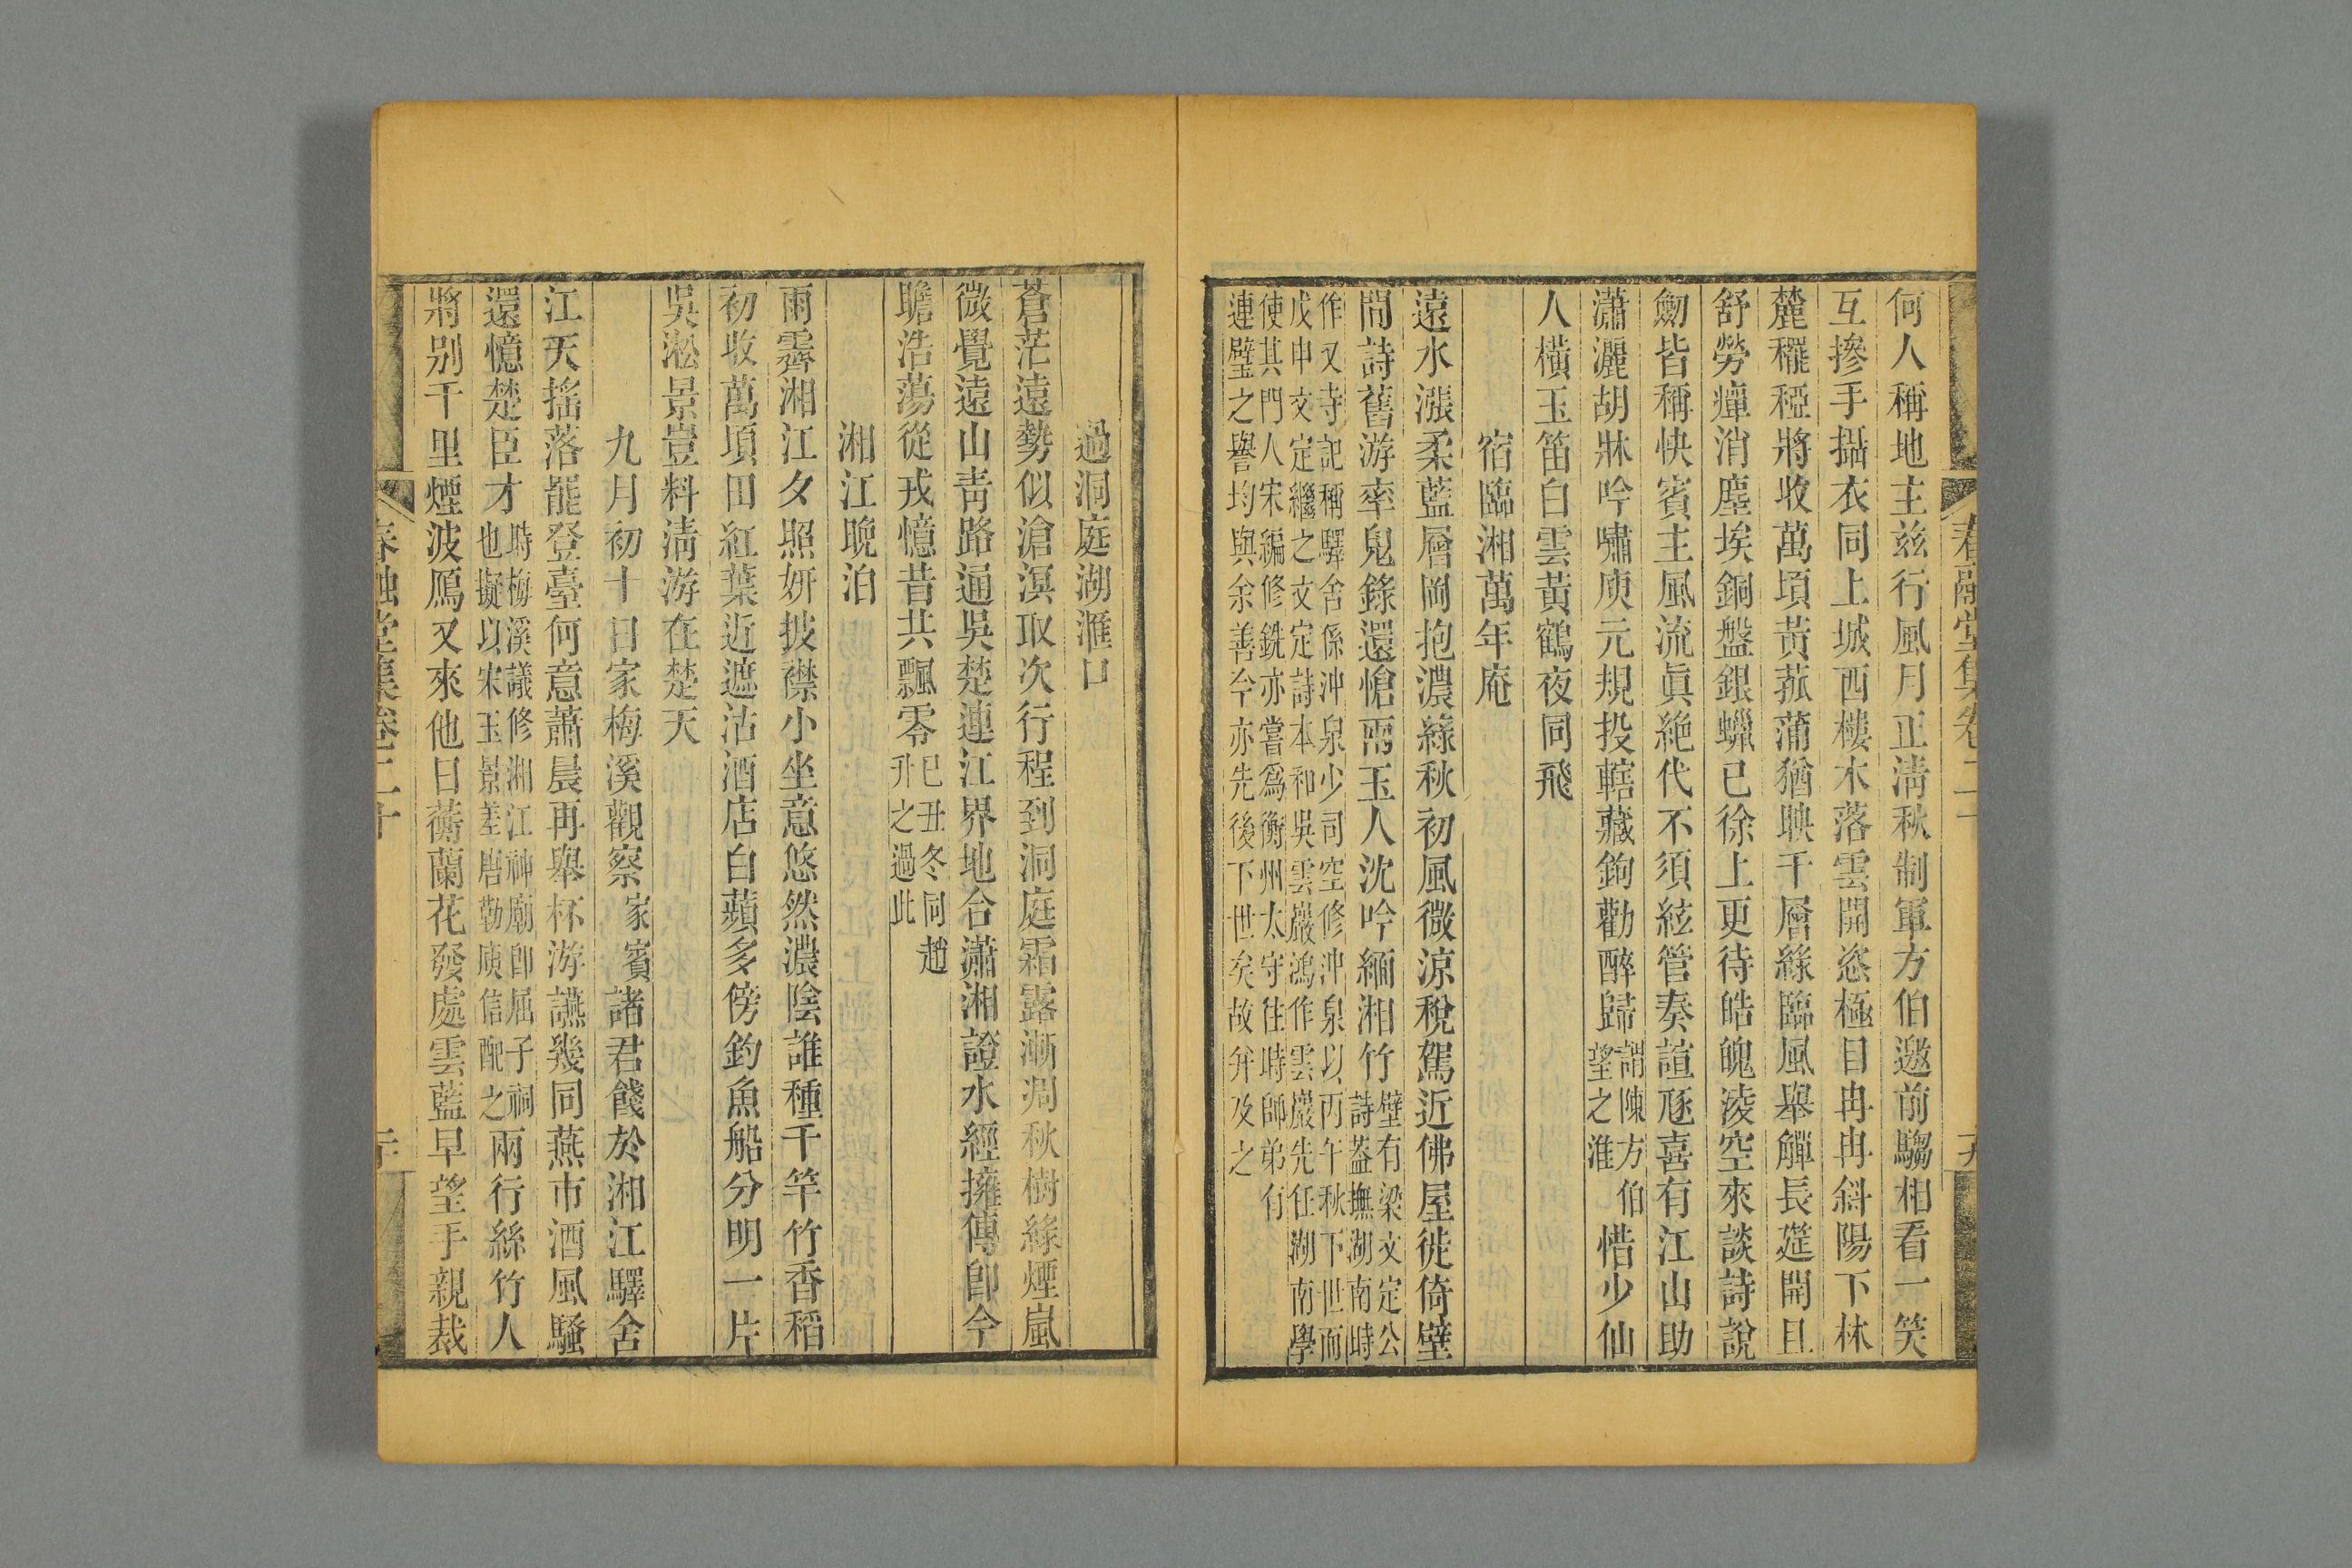 春融堂集卷二十
何人稱地主兹行風月正淸秋制軍方伯邀前騶相看一笑
互摻手攝衣同上城西樓木落雲開恣極目冉冉斜陽下林
麓䆉稏將收萬頃黃菰蒲猶映千層綠臨風舉觶長筵開且
舒勞癉消塵埃銅盤銀蠟已徐上更待皓魄淩空來談詩說
劒皆稱快賓主風流眞絶代不須絃管奏諠豗喜有江山助
瀟灑胡牀吟嘯庾元規投轄藏鉤勸醉歸謂陳方伯望之淮惜少仙
人橫玉笛白雲黃鶴夜同飛
宿臨湘萬年庵
遠水漲柔藍層岡抱濃綠秋初風微涼稅駕近佛屋徙倚壁
間詩舊游率鬼錄還愴兩玉人沈吟緬湘竹壁有梁文定公詩蓋撫湖南時
作又寺記稱驛舍係沖泉少司空修沖泉以丙午秋下世而
戊申文定繼之文定詩本和吳雲巖鴻作雲巖先任湖南學
使其門人宋編修銑亦嘗爲衡州太守往時師弟有
連璧之譽均與余善今亦先後下世矣故幷及之
過洞庭湖滙口
蒼茫遠勢似滄溟取次行程到洞庭霜露漸凋秋樹綠煙嵐
微覺遠山靑路通吳楚連江界地合瀟湘證水經擁傳卽今
瞻浩蕩從戎憶昔共飄零己丑冬同趙升之過此
湘江晚泊
雨霽湘江夕照姸披襟小坐意悠然濃陰誰種千竿竹香稻
初收萬頃田紅葉近遮沽酒店白蘋多傍釣魚船分明一片
吳淞景豈料淸游在楚天
九月初十日家梅溪觀察家賓諸君餞於湘江驛舍
江天搖落罷登臺何意蕭晨再舉杯游讌幾同燕市酒風騷
還憶楚臣才時梅溪議修湘江神廟卽屈子祠也擬以宋玉景差唐勒庾信配之兩行絲竹人
將別千里煙波鴈又來他日蘅蘭花發處雲藍早望手親裁
春融堂集卷二十